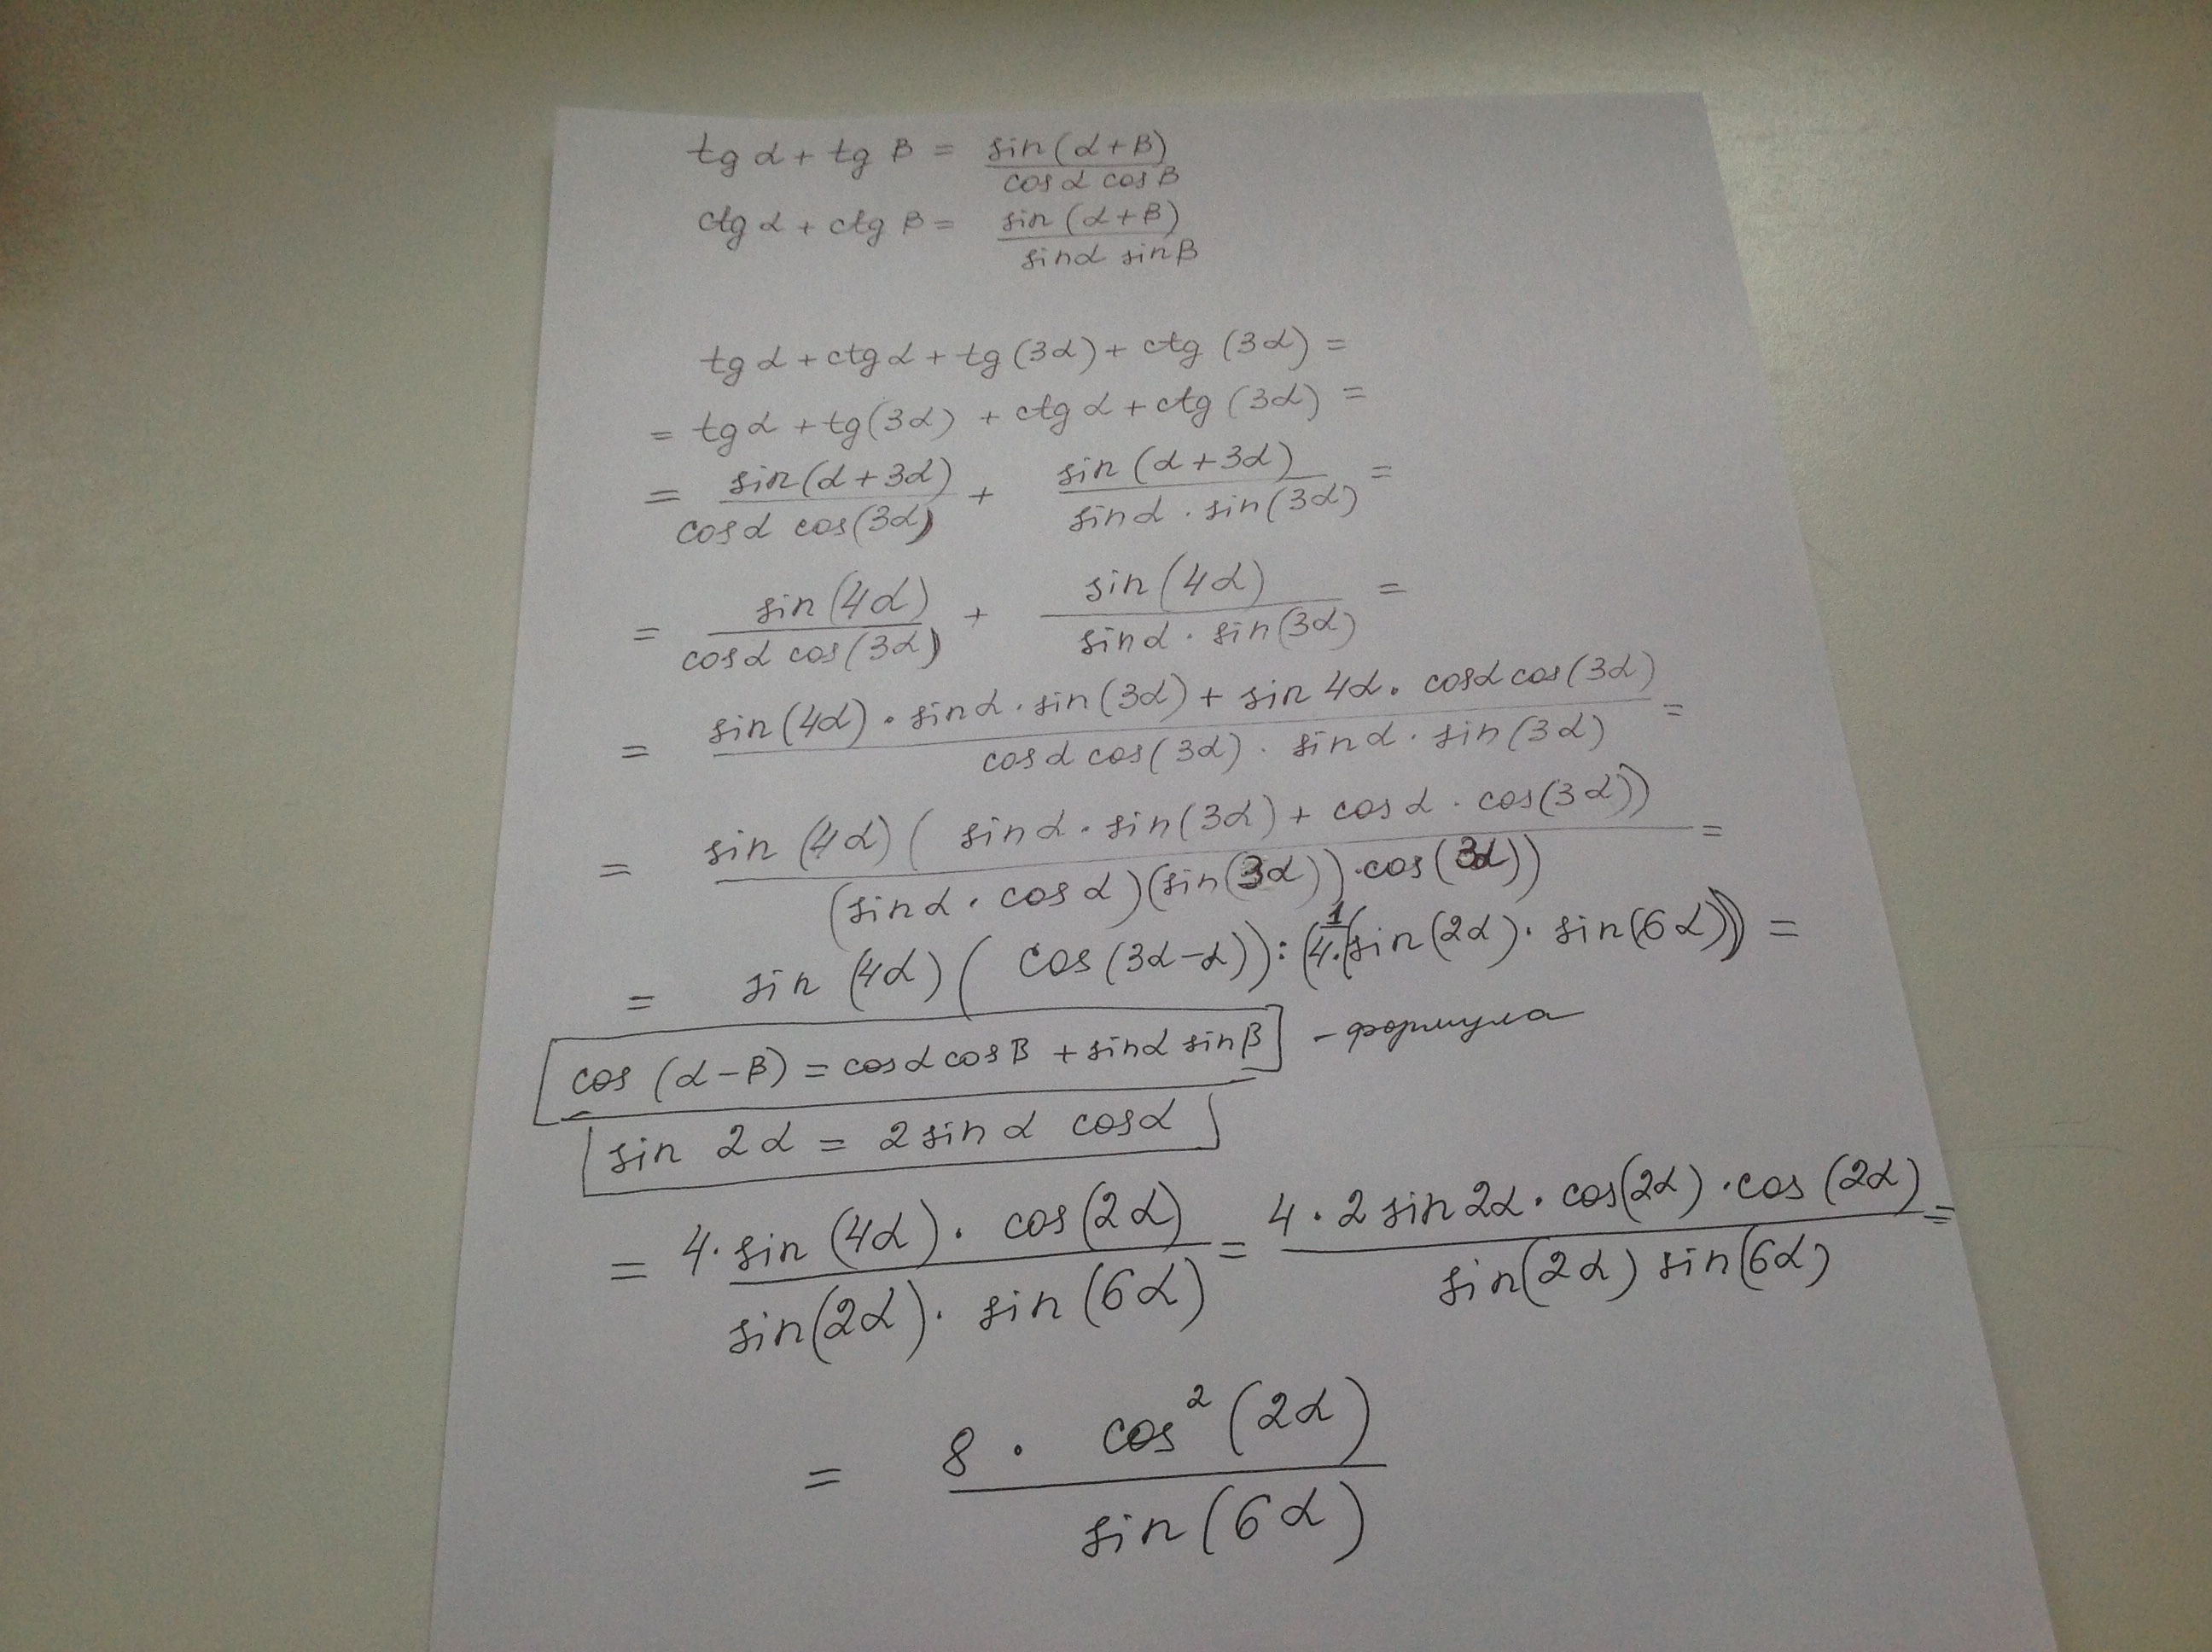 tg α + tg β = sin(α+β) / cos α cos β
ctg α + ctg β = sin(α+β) / sin α sin β
tg α + ctg α + tg(3α) + ctg(3α) =
= tg α + tg(3α) + ctg α + ctg(3α) =
= sin(α+3α) / cos α cos(3α) + sin(α+3α) / sin α · sin(3α) =
= sin(4α) / cos α cos(3α) + sin(4α) / sin α · sin(3α) =
= sin(4α) · sin α · sin(3α) + sin 4α · cos α cos(3α) / cos α cos(3α) · sin α · sin(3α) =
= sin(4α)( sin α · sin(3α) + cos α · cos(3α)) / (sin α · cos α)(sin(3α)) · cos(3α)) =
= sin(4α)( cos(3α-α)) : (1/4 · (sin(2α) · sin(6α)) =
cos(α-β) = cos α cos β + sin α sin β - формула
sin 2α = 2 sin α cos α
= 4 · sin(4α) · cos(2α) / sin(2α) · sin(6α) = 4 · 2 sin 2α · cos(2α) · cos(2α) / sin(2α) sin(6α) =
= 8 · cos²(2α) / sin(6α)